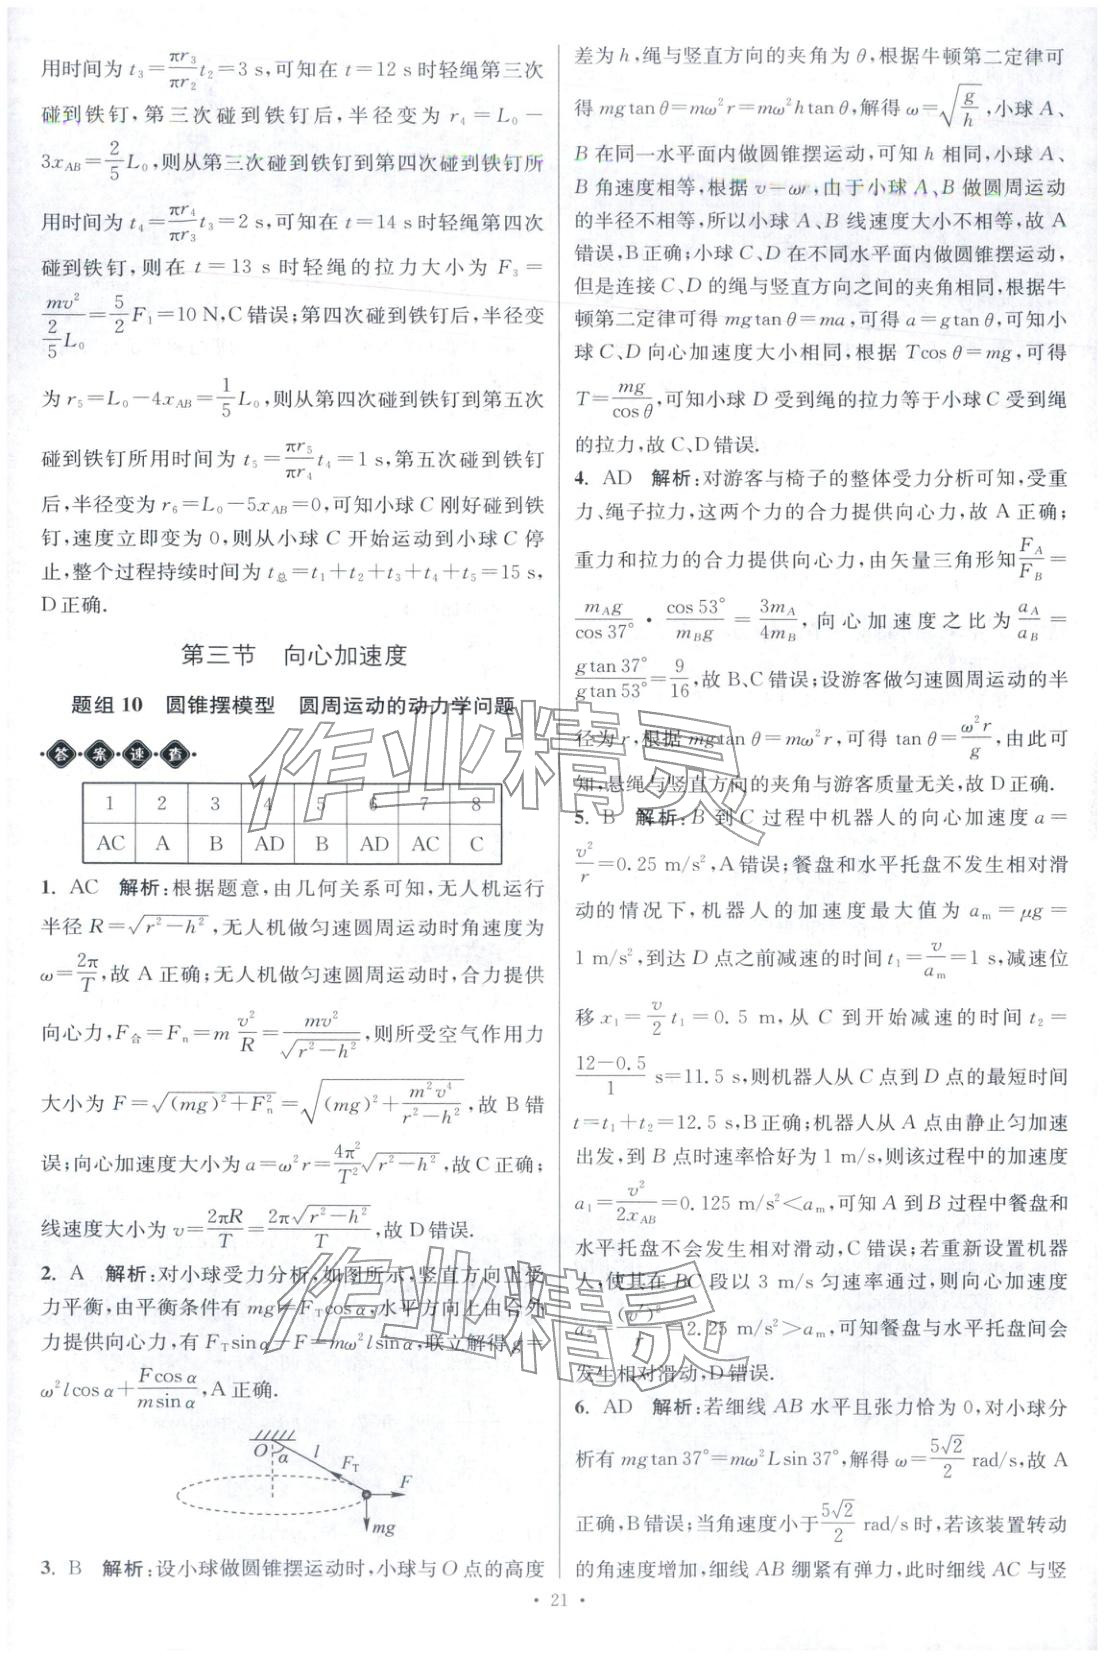 用时间为 t₃=πr₃/πr₂ t₂=3 s,可知在 t=12 s 时轻绳第三次
碰到铁钉,第三次碰到铁钉后,半径变为 r₄=L₀-
3x_AB=2/5 L₀,则从第三次碰到铁钉到第四次碰到铁钉所
用时间为 t₄=πr₄/πr₃ t₃=2 s,可知在 t=14 s 时轻绳第四次
碰到铁钉,则在 t=13 s 时轻绳的拉力大小为 F₃=
mv²/(2/5 L₀)=5/2 F₁=10 N,C 错误;第四次碰到铁钉后,半径变
为 r₅=L₀-4x_AB=1/5 L₀,则从第四次碰到铁钉到第五次
碰到铁钉所用时间为 t₅=πr₅/πr₄ t₄=1 s,第五次碰到铁钉
后,半径变为 r₆=L₀-5x_AB=0,可知小球 C 刚好碰到铁
钉,速度立即变为 0,则从小球 C 开始运动到小球 C 停
止,整个过程持续时间为 t总=t₁+t₂+t₃+t₄+t₅=15 s,
D 正确.
第三节 向心加速度
题组 10 圆锥摆模型 圆周运动的动力学问题
答案速查
1 2 3 4 5 6 7 8
AC A B AD B AD AC C
1. AC 解析:根据题意,由几何关系可知,无人机运行
半径 R=√(r²-h²),无人机做匀速圆周运动时角速度为
ω=2π/T,故 A 正确;无人机做匀速圆周运动时,合力提供
向心力,F合=Fₙ=m v²/R=mv²/√(r²-h²),则所受空气作用力
大小为 F=√((mg)²+Fₙ²)=√((mg)²+m²v⁴/(r²-h²)),故 B 错
误;向心加速度大小为 a=ω²r=4π²/T² √(r²-h²),故 C 正确;
线速度大小为 v=2πR/T=2π√(r²-h²)/T,故 D 错误.
2. A 解析:对小球受力分析,如图所示,竖直方向上受
力平衡,由平衡条件有 mg=F_T cos α,水平方向上由合外
力提供向心力,有 F_T sin α-F=mω²l sin α,联立解得 g=
ω²l cos α+F cos α/(m sin α),A 正确.
O α l F_T F
mg
3. B 解析:设小球做圆锥摆运动时,小球与 O 点的高度
差为 h,绳与竖直方向的夹角为 θ,根据牛顿第二定律可
得 mg tan θ=mω²r=mω²h tan θ,解得 ω=√(g/h),小球 A、
B 在同一水平面内做圆锥摆运动,可知 h 相同,小球 A、
B 角速度相等,根据 v=ωr,由于小球 A、B 做圆周运动
的半径不相等,所以小球 A、B 线速度大小不相等,故 A
错误,B 正确;小球 C、D 在不同水平面内做圆锥摆运动,
但是连接 C、D 的绳与竖直方向之间的夹角相同,根据牛
顿第二定律可得 mg tan θ=ma,可得 a=g tan θ,可知小
球 C、D 向心加速度大小相同,根据 T cos θ=mg,可得
T=mg/cos θ,可知小球 D 受到绳的拉力等于小球 C 受到绳
的拉力,故 C、D 错误.
4. AD 解析:对游客与椅子的整体受力分析可知,受重
力、绳子拉力,这两个力的合力提供向心力,故 A 正确;
重力和拉力的合力提供向心力,由矢量三角形知F_A/F_B=
m_A g/cos 37°·cos 53°/m_B g=3m_A/4m_B,向心加速度之比为a_A/a_B=
g tan 37°/g tan 53°=9/16,故 B、C 错误;设游客做匀速圆周运动的半
径为 r,根据 mg tan θ=mω²r,可得 tan θ=ω²r/g,由此可
知,悬绳与竖直方向的夹角与游客质量无关,故 D 正确.
5. B 解析:B 到 C 过程中机器人的向心加速度 a=
v²/r=0.25 m/s²,A 错误;餐盘和水平托盘不发生相对滑
动的情况下,机器人的加速度最大值为 aₘ=μg=
1 m/s²,到达 D 点之前减速的时间 t₁=v/aₘ=1 s,减速位
移 x₁=v/2 t₁=0.5 m,从 C 到开始减速的时间 t₂=
(12-0.5)/1 s=11.5 s,则机器人从 C 点到 D 点的最短时间
t=t₁+t₂=12.5 s,B 正确;机器人从 A 点由静止匀加速
出发,到 B 点时速率恰好为 1 m/s,则该过程中的加速度
a₁=v²/2x_AB=0.125 m/s²<aₘ,可知 A 到 B 过程中餐盘和
水平托盘不会发生相对滑动,C 错误;若重新设置机器
人,使其在 BC 段以 3 m/s 匀速率通过,则向心加速度
a₂=(v′)²/r=2.25 m/s²>aₘ,可知餐盘与水平托盘间会
发生相对滑动,D 错误.
6. AD 解析:若细线 AB 水平且张力恰为 0,对小球分
析有 mg tan 37°=mω²L sin 37°,解得 ω=5√2/2 rad/s,故 A
正确,B 错误;当角速度小于5√2/2 rad/s 时,若该装置转动
的角速度增加,细线 AB 绷紧有弹力,此时细线 AC 与竖
作业精灵
作业精灵
· 21 ·